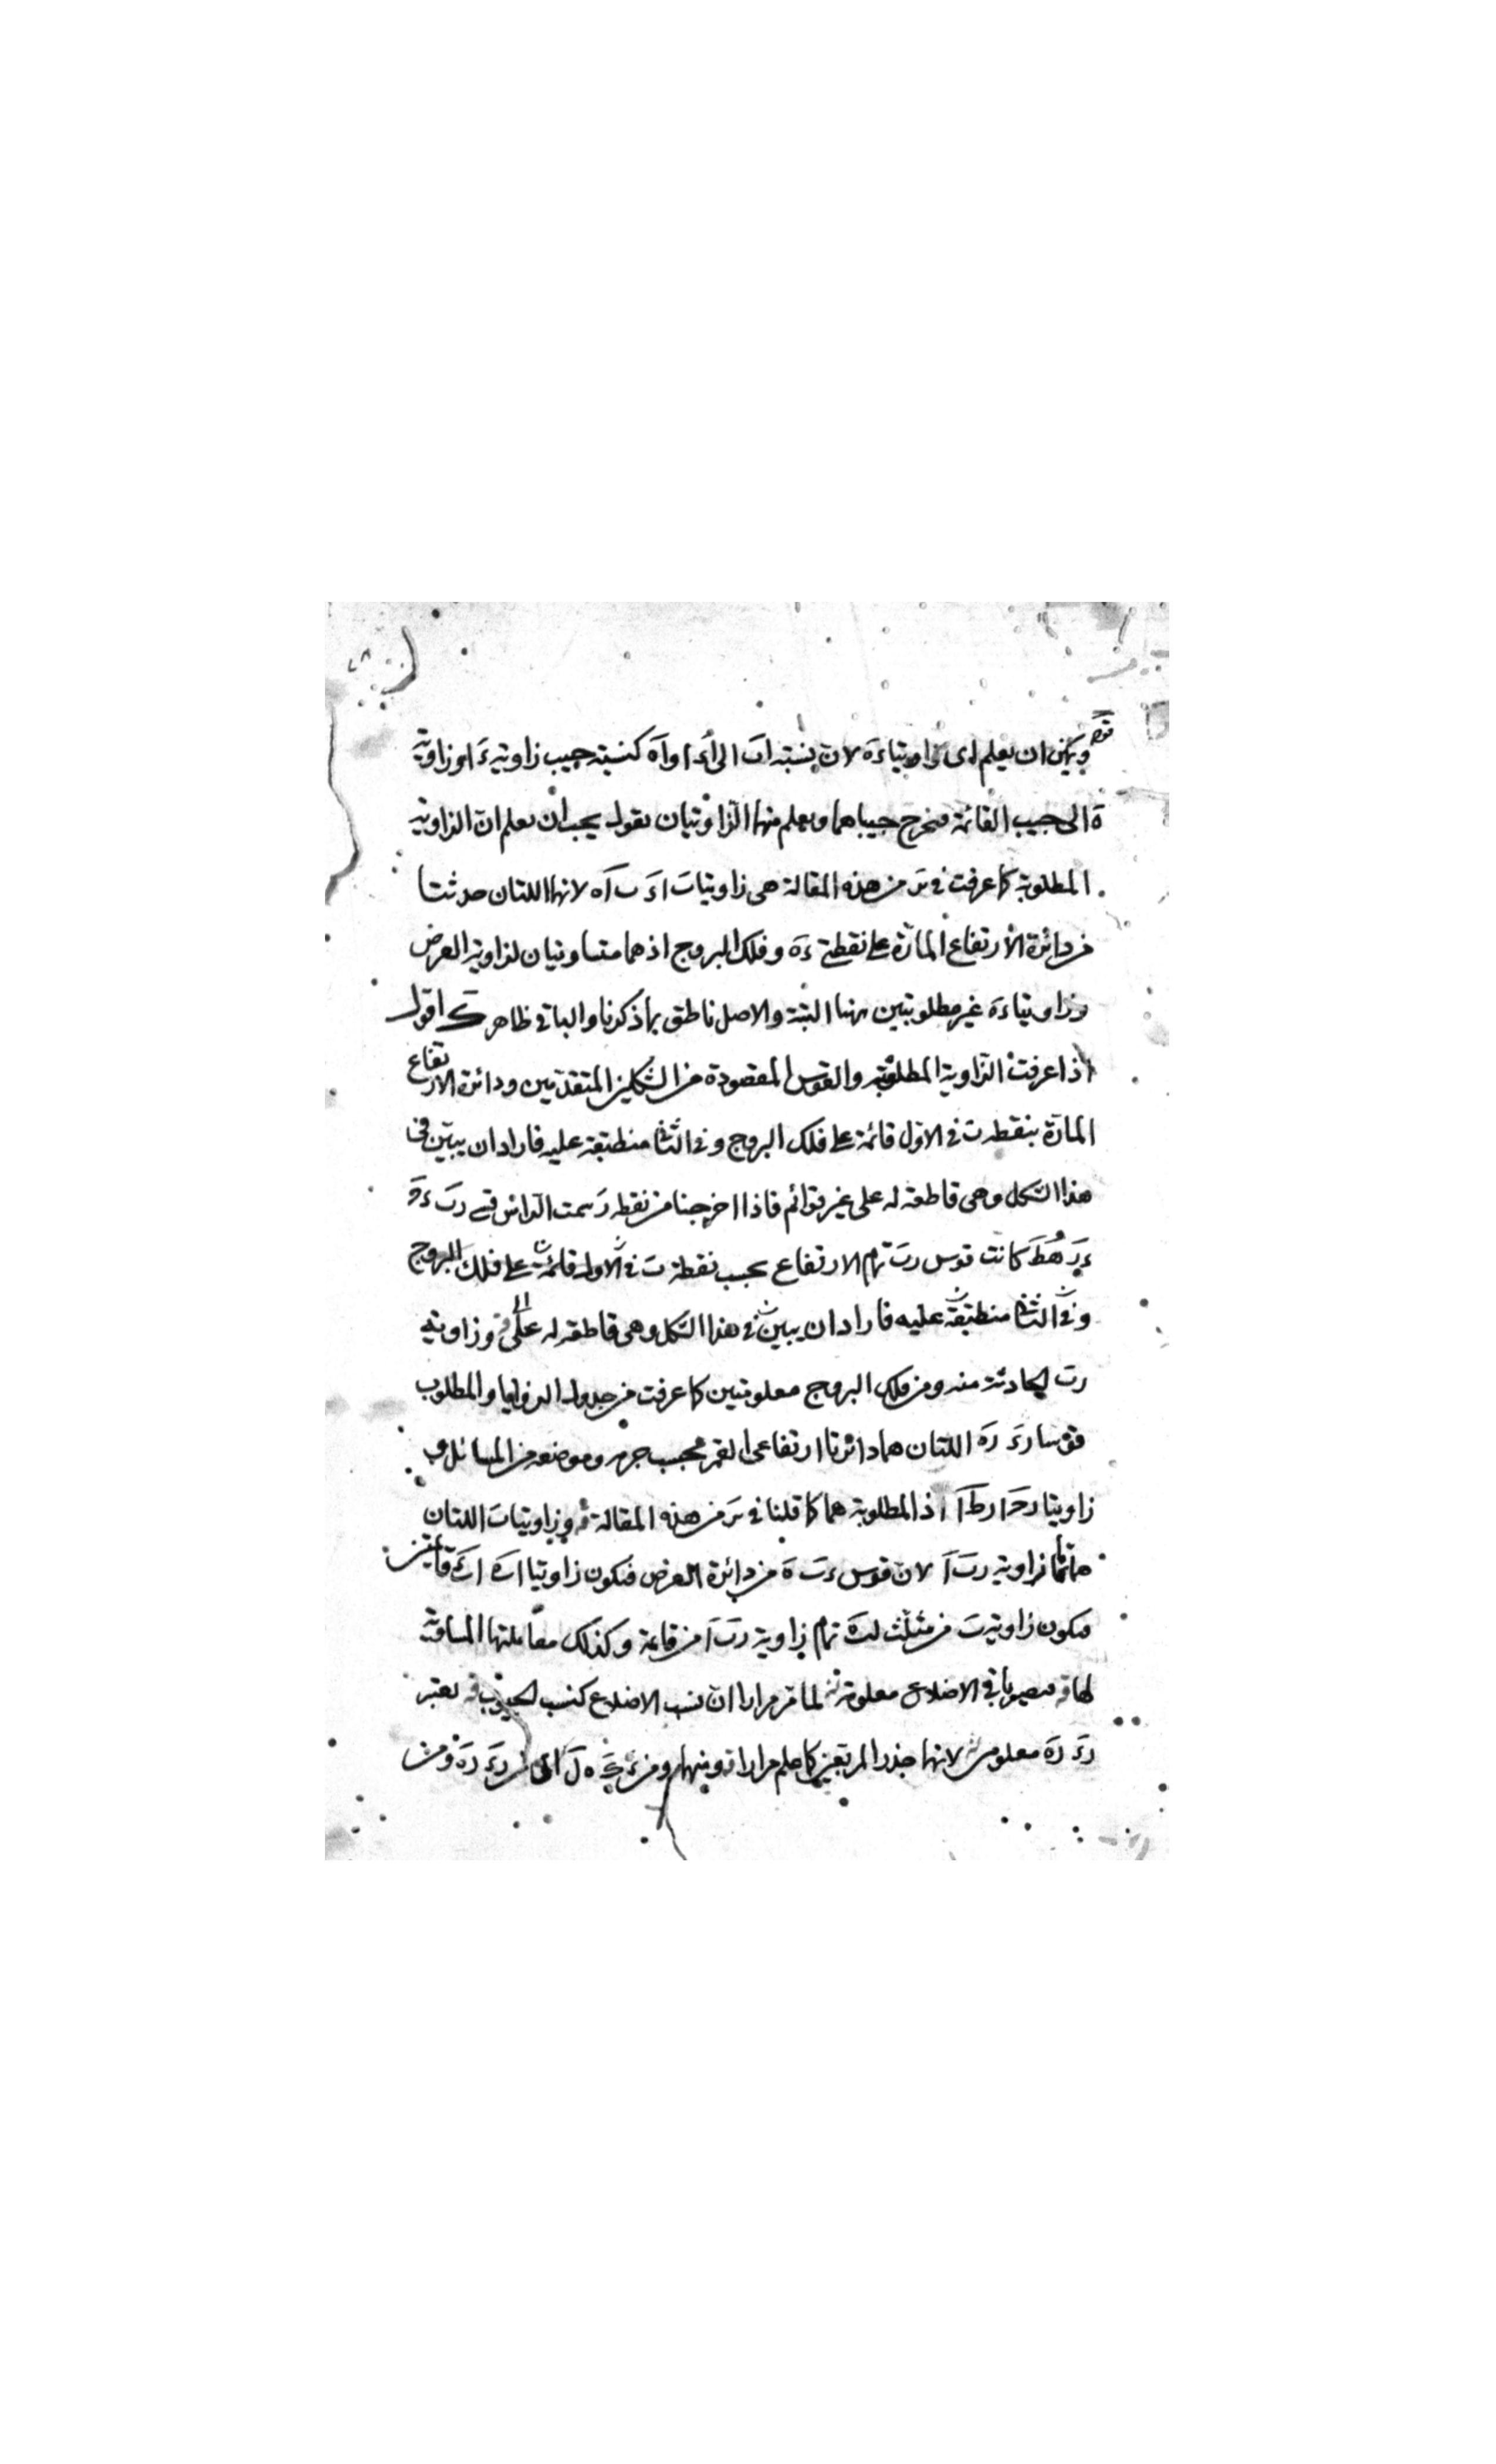 ويمكن ان يعلم اى زاويتا ءَ هَ لان نسبة اَبَ الى اءَ او اهَ كنسبة جيب زاوية ءَ او زاوية
هَ الى جيب القائمة فيخرج جيباهما ويعلم منهما الزاويتان نقول يجب ان يعلم ان الزاوية
المطلوبة كما عرفت فى من هذه المقالة هى زاويتا بَ اءَ بَ اَه لانهما اللتان حدثتا
من دائرة الارتفاع المارة على نقطتى ءَ هَ وفلك البروج اذ هما متساويتان لزاوية العرض
وزاويتا ءَ هَ غير مطلوبتين ههنا البتة والاصل ناطق بما ذكرنا والباقى ظاهر كَ اقول
اذا عرفت الزاوية المطلوبة والقوس المقصودة من الشكلين المتقدمين ودائرة الارتفاع
المارة بنقطة بَ فى الاول قائمة على فلك البروج وفى الثانى منطبقة عليه فاراد ان يبين فى
هذا الشكل وهى قاطعة له على غير قوائم فاذا اخرجنا من نقطة رَ سمت الراس قسى ربَ
كانت قوس ربَ تمام الارتفاع بحسب نقطة بَ فى الاول قائمة على فلك البروج
وفى الثانى منطبقة عليه فاراد ان يبين فى هذا الشكل وهى قاطعة له على وزاوية
ربَ الحادثة منه ومن فلك البروج معلومتين كما عرفت من جدول الزوايا والمطلوب
قوسا رءَ رهَ اللتان هما دائرتا ارتفاعى القمر بحسب جرمه وموضعه من المائل و
زاويتا رحَ ا رطَ اَ اذ المطلوبة هما كما قلنا فى من هذه المقالة وزاويتا بَ اللتان
زاوية ربَ اَ لان قوس ءبَ هَ من دائرة العرض فيكون زاويتا ابَ هَ ابَ ءَ قائمتين
فيكون زاوية بَ من مثلث تمام زاوية ربَ اَ من قائمة وكذلك مقابلتها المساوية
لها فيصير باقى الاضلاع معلومة لما مر مرارا ان نسب الاضلاع كنسب الجيوب يعتبر
رءَ رهَ معلومين لانهما جذرا المربعين كما علم مرارا